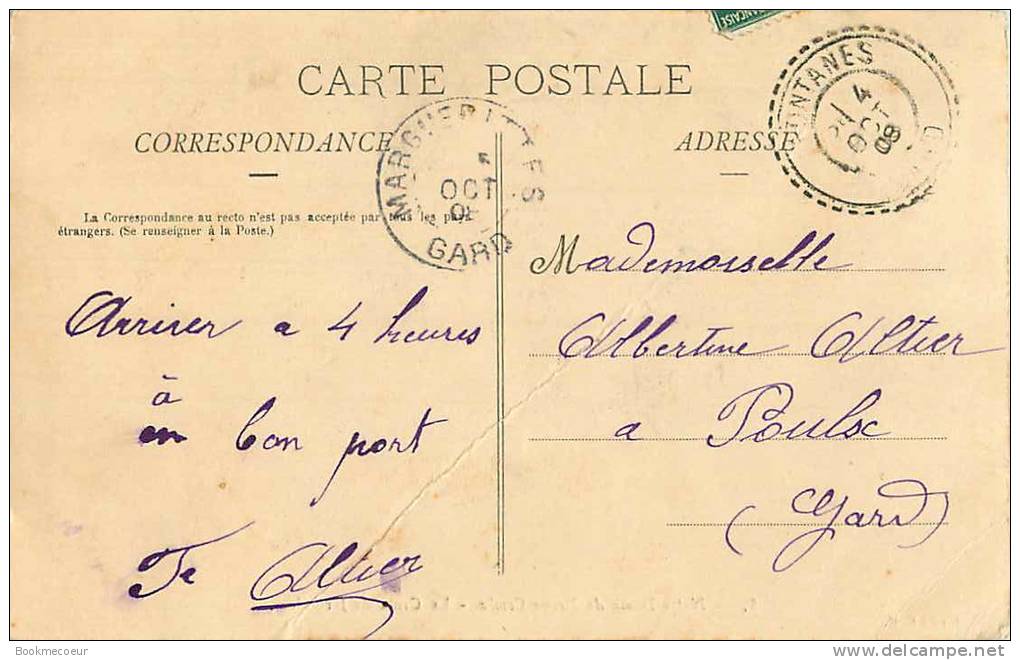 FRANÇAISE
CARTE POSTALE
CORRESPONDANCE
ADRESSE
La Correspondance au recto n'est pas acceptée par tous les pays
étrangers. (Se renseigner à la Poste.)
MARGUERITTES
OCT
GARD
4
OCT
08
Mademoiselle
Albertine Altier
a Poulx
(Gard)
Arriver a 4 heures
à
en bon port
Altier
Bookmecoeur
delcampe.net